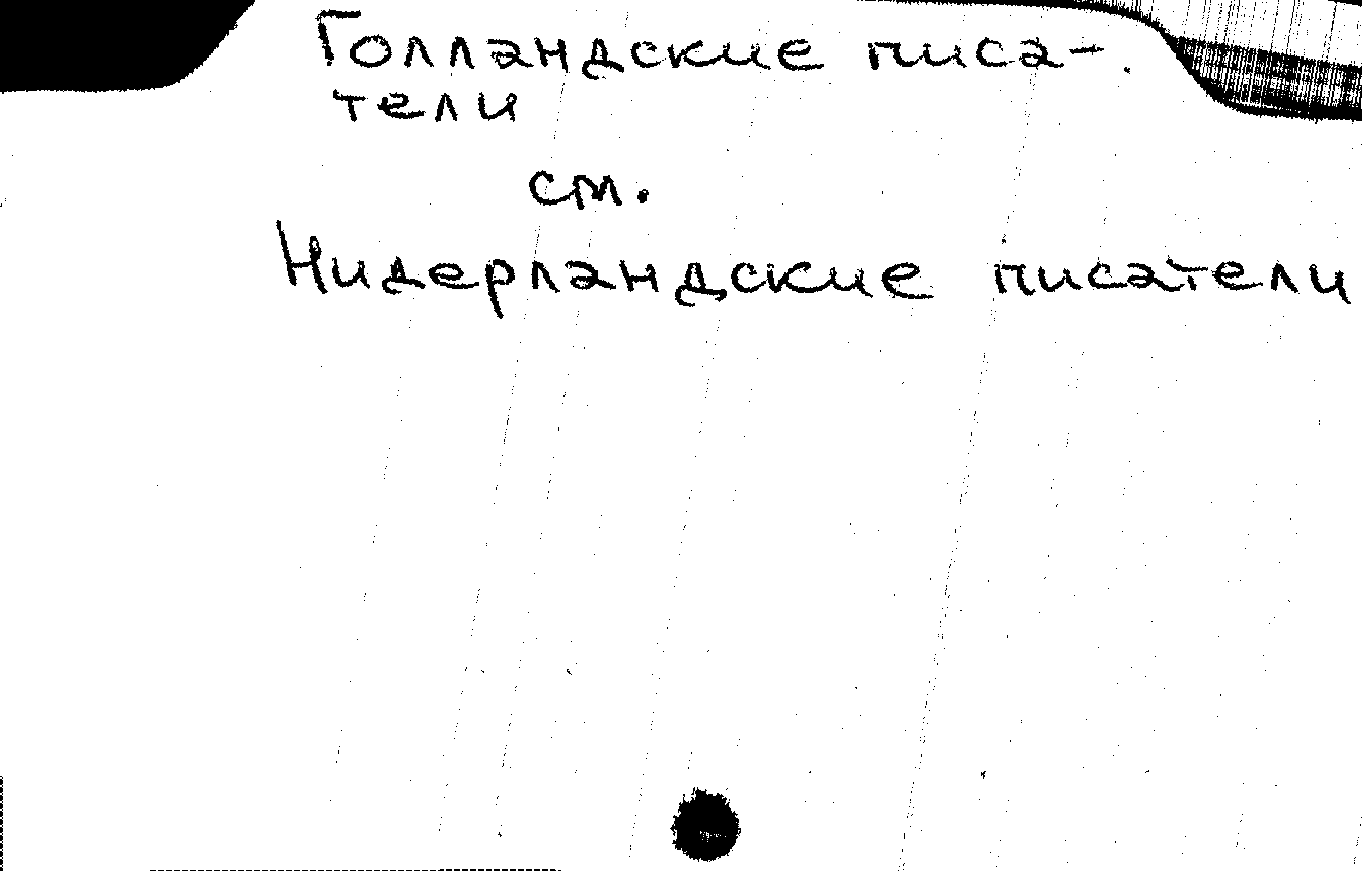 Голландские писа-
тели
см.
Нидерландские писатели